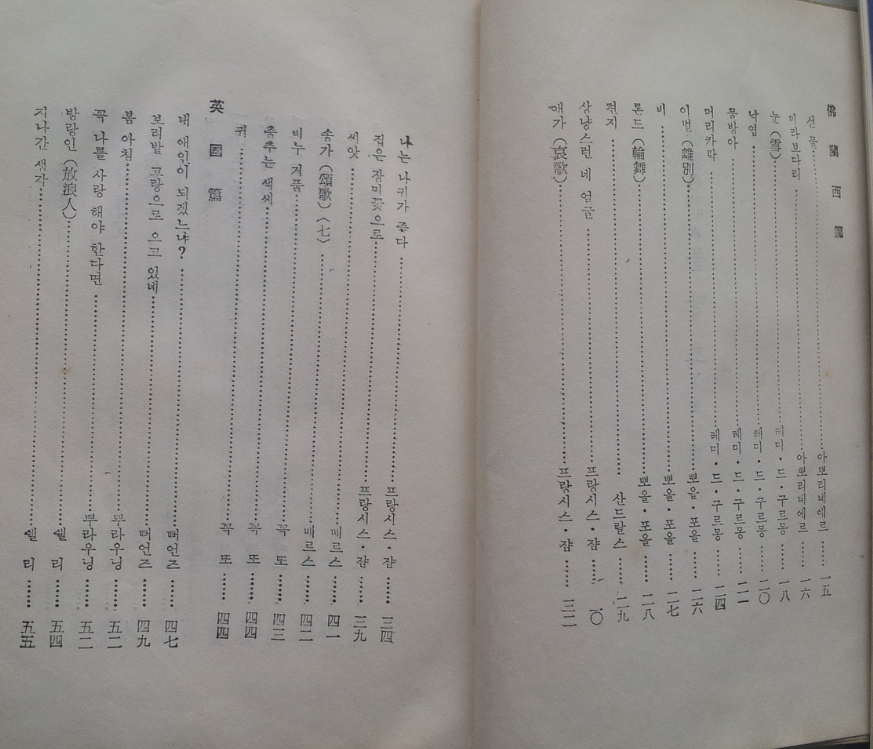 佛蘭西篇
선물……아뽀리네에르……一五
미라보다리……아뽀리네에르……一六
눈(雪)……레미・드・구르몽……一八
낙엽……레미・드・구르몽……二〇
물방아……레미・드・구르몽……
머리카락……레미・드・구르몽……二四
이별(離別)……뽀올・포올……二六
비……뽀올・포올……二七
론드(輪舞)……뽀올・포올……二八
편지……산드랄스……二九
상냥스런 네 얼굴……프랑시스・쟘……〇
애가(哀歌)……프랑시스・쟘……三二
나는 나귀가 좋다……프랑시스・쟘……三四
집은 장미꽃으로……프랑시스・쟘……三九
씨앗……베르스……四一
송가(頌歌)〈七〉……베르스……四二
비누 거품……꼭 또……四三
춤추는 색씨……꼭 또……四四
귀……꼭 또……四四
英國篇
내 애인이 되겠느냐?……뻐언즈……四七
보리밭 고랑으로 오고 있네……뻐언즈……四九
봄 아침……뿌라우닝……五二
꼭 나를 사랑 해야 한다면……뿌라우닝……五二
방랑인(放浪人)……쉘 리……五四
지나간 생각……쉘 리……五五